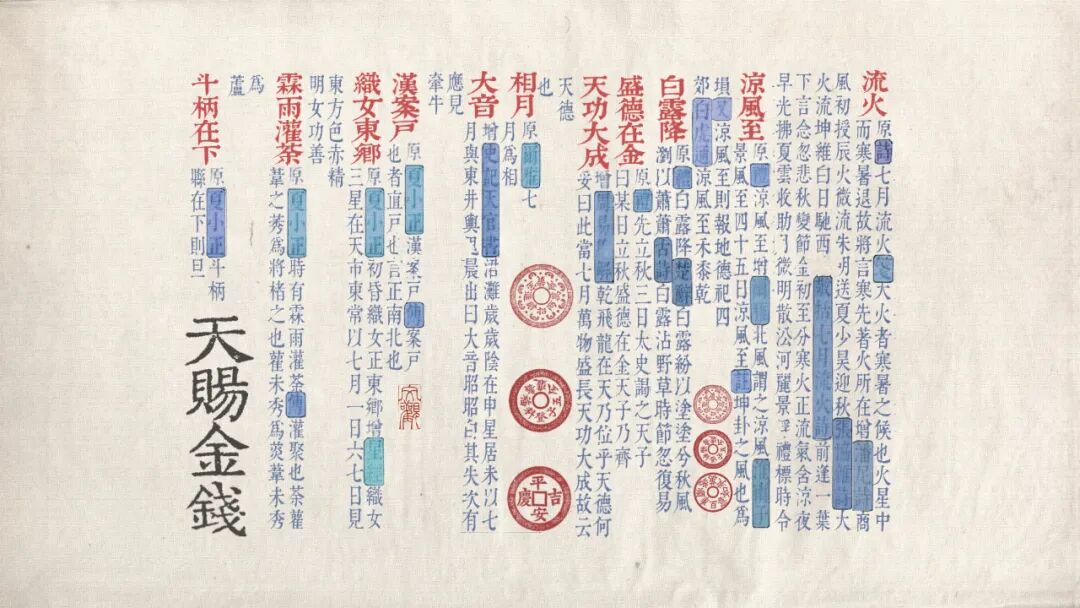 流火原詩七月流火箋大火者寒暑之候也火星中
而寒暑退故將言寒先著火所在增潘尼詩商
風初授辰火微流朱明送夏少昊迎秋張協雜詩大
火流坤維白日馳西 敬括七月流火詩前逢一葉
下言念忽悲秋變節金初至分寒火正流氣含涼夜
早光拂夏雲收助月微明散沿河麗景浮禮標時令
涼風至原禮涼風至增爾雅北風謂之涼風淮南子
景風至四十五日涼風至註坤卦之風也為
塤又涼風至則報地德祀四
郊白虎通涼風至禾黍乾
白露降原禮白露降楚辭白露紛以塗塗兮秋風
瀏以蕭蕭古詩白露沾野草時節忽復易
盛德在金原禮先立秋三日太史謁之天子
曰某日立秋盛德在金天子乃齊
天功大成增 乾飛龍在天乃位乎天德何
妥曰此當七月萬物盛長天功大成故云
天德
相月原爾雅七
月為相
也
大音增史記天官書涒灘歲歲陰在申星居未以七
月與東井輿鬼晨出曰大音昭昭白其失次有
應見
牽牛
漢案戸原夏小正漢案戸傳案戸
也者直戸也言正南北也
織女東鄉原夏小正初昏織女正東鄉增星經織女
三星在天市東常以七月一日六七日見
東方色赤精
明女功善
霖雨灌荼原夏小正時有霖雨灌荼傳灌聚也荼雚
葦之莠為將楮之也雚未秀為菼葦未秀
為
蘆
斗柄在下原夏小正斗柄
縣在下則旦
天賜金錢
平安吉慶